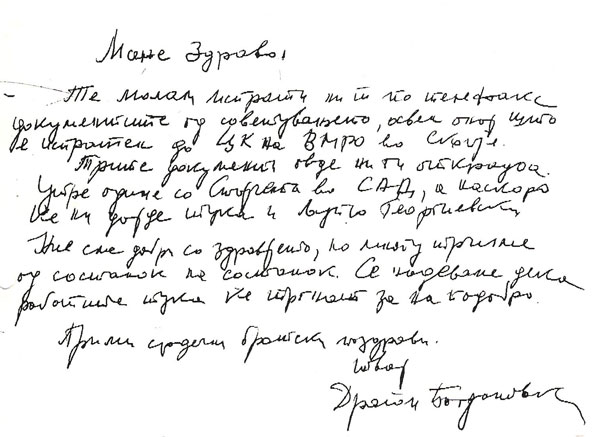 Мане Здраво,
Те молам истрати ни ги по телефакс
документите од советувањето, освен оној што
е испратен до ЦК на ВМРО во Скопје.
Трите документи овде ни ги
Утре одиме со во САД, а наскоро
ќе ни дојде тука и Љупчо Георгиевски
Ние сме добри со здравјето, но многу трчаме
од состанок на состанок. Се надеваме дека
работите тука ќе тргнат за на подобро.
Прими срдечни братски поздрави.
твој
Драган Богдановски